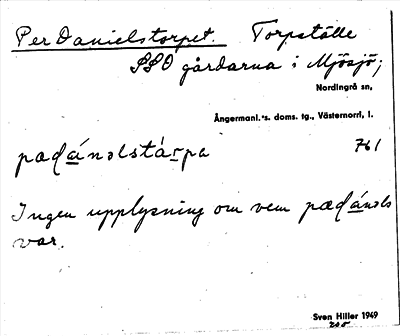 Per Danielstorpet. Torpställe
SSO gårdarna i Mjösjö;
Nordingrå sn,
Ångermanl:s. doms. tg., Västernorrl. l.
pædánəlstárpa 761
Ingen upplysning om vem pædánəls
var.
Sven Hiller 1949